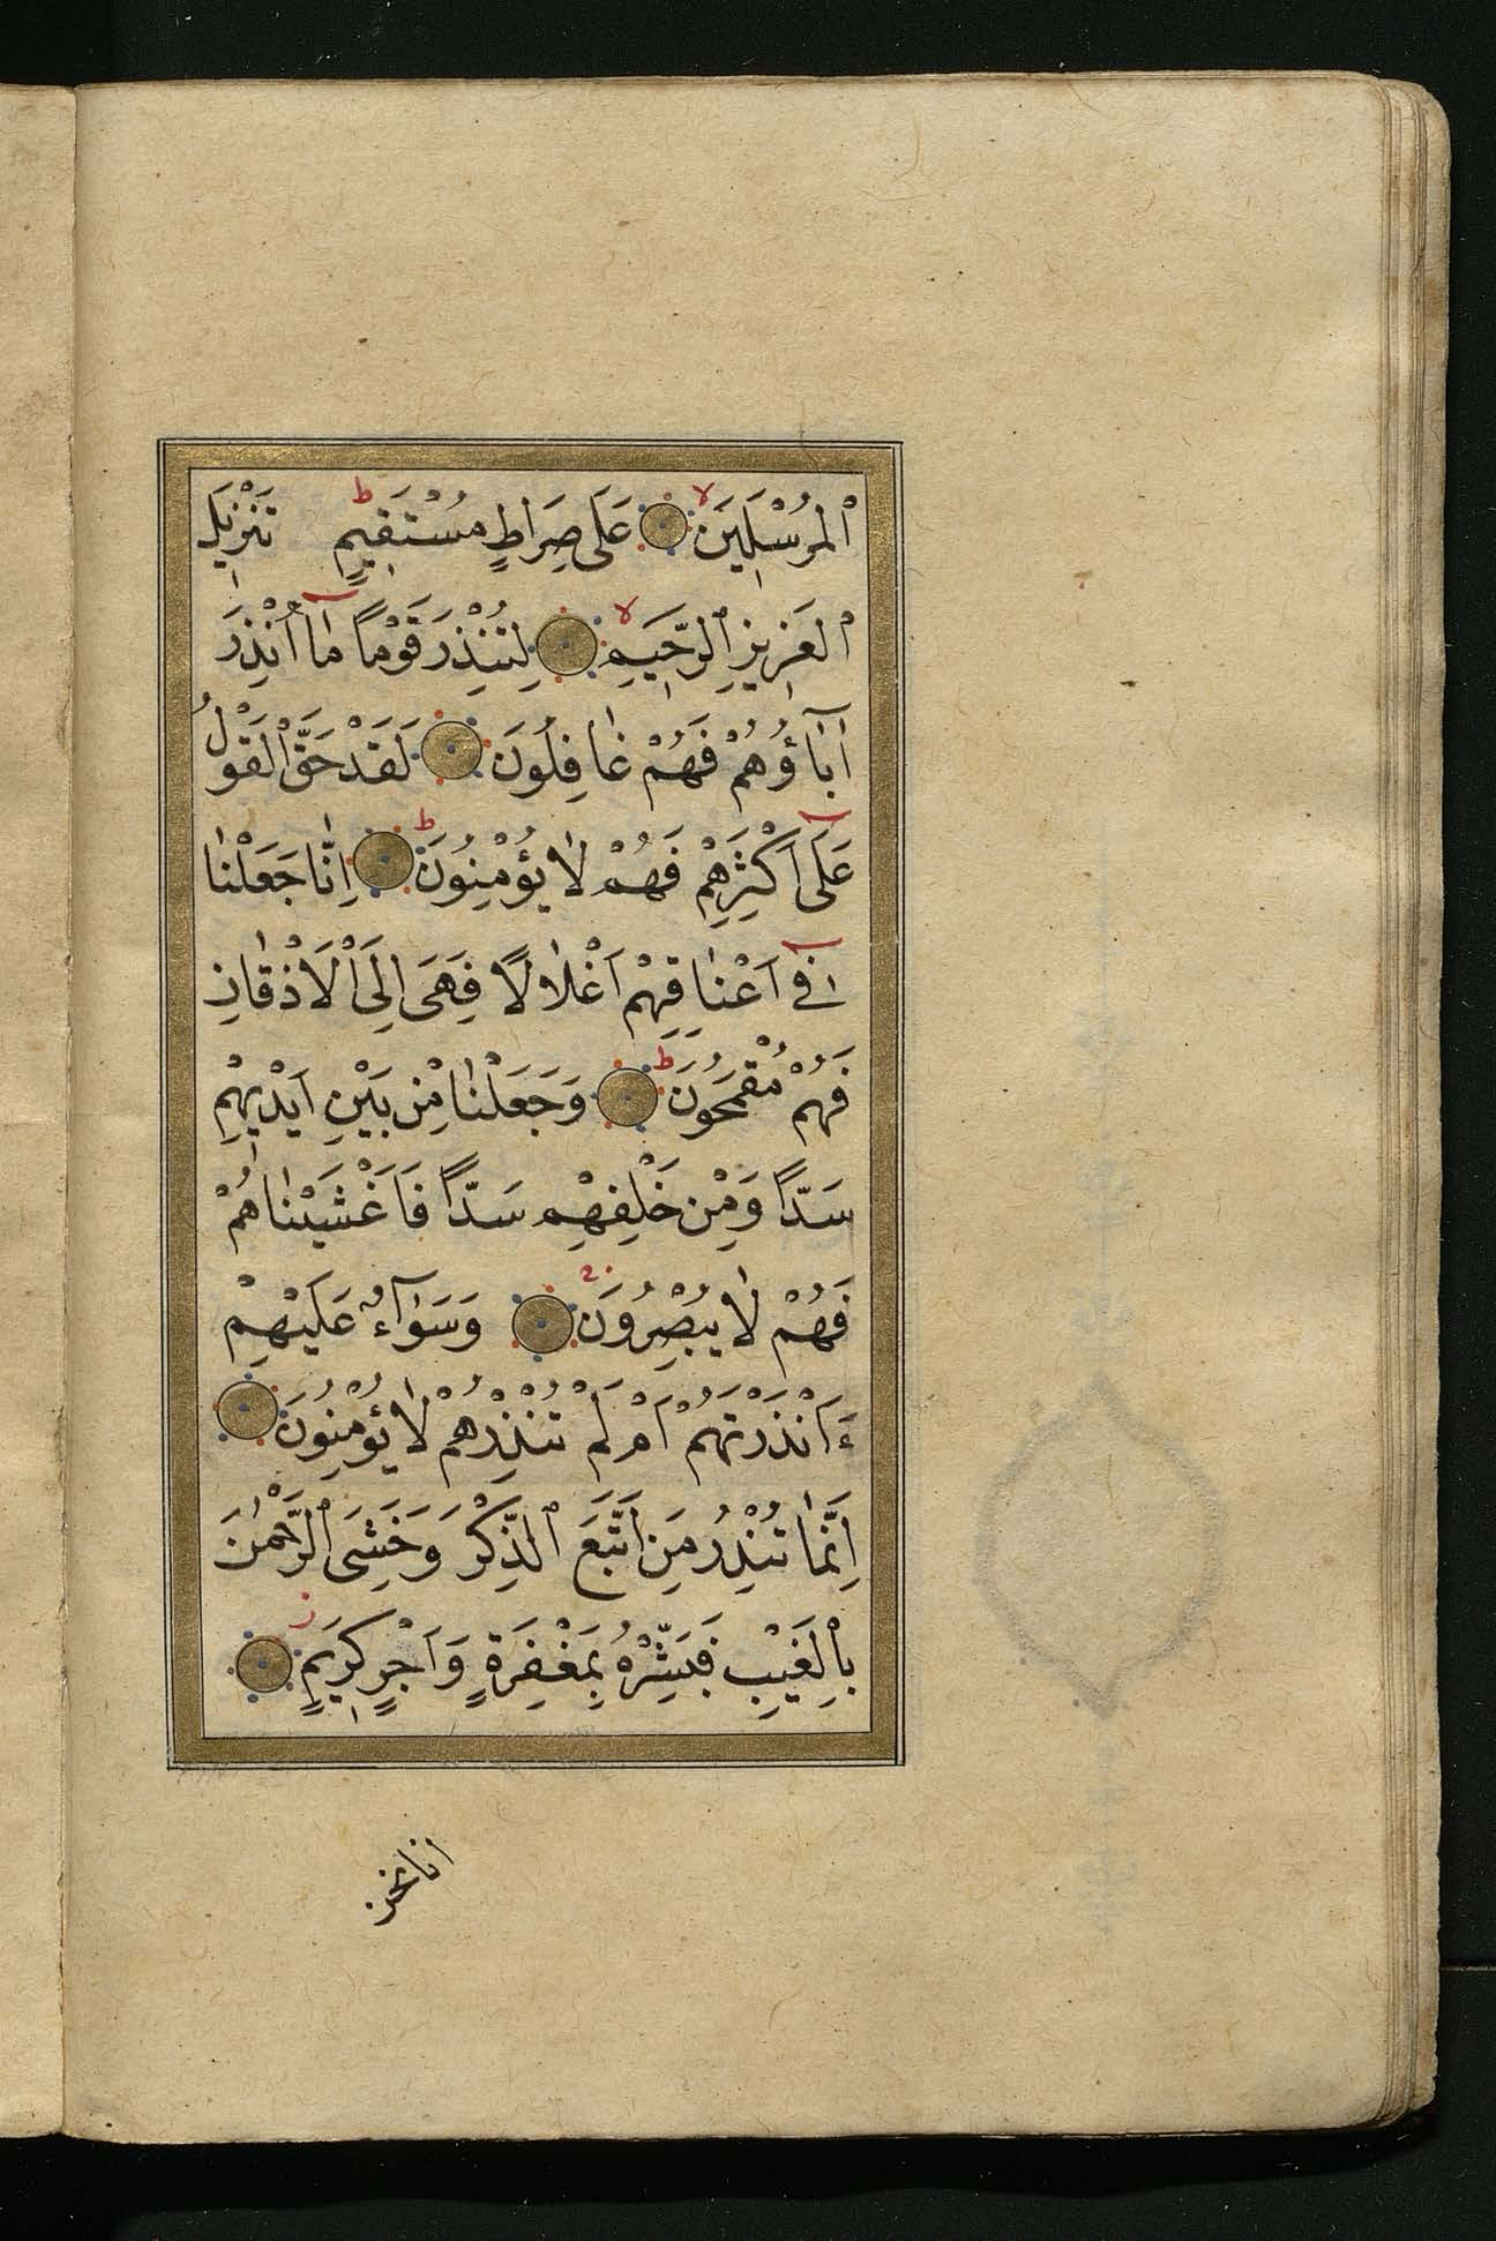 ٱلْمُرْسَلِينَ لا عَلَى صِرَاطٍ مُسْتَقِيمٍ ط تَنْزِيلَ
ٱلعَزِيزِ ٱلرَّحِيمِ لا لِتُنْذِرَ قَوْمًا مٰا أُنْذِرَ
اٰبٰٓاؤُهُمْ فَهُمْ غٰافِلُونَ لَقَدْ حَقَّ ٱلْقَوْلُ
عَلَىٓ اَكْثَرِهِمْ فَهُمْ لٰا يُؤْمِنُونَ ط اِنّٰا جَعَلْنٰا
فِىٓ اَعْنٰاقِهِمْ اَغْلٰالًا فَهِىَ اِلَى ٱلْاَذْقٰانِ
فَهُمْ مُقْمَحُونَ ط وَجَعَلْنٰا مِنْ بَيْنِ اَيْدِيهِمْ
سَدّاً وَمِنْ خَلْفِهِمْ سَدّاً فَاَغْشَيْنٰاهُمْ
فَهُمْ لٰا يُبْصِرُونَ وَسَوٰٓاءٌ عَلَيْهِمْ
ءَاَنْذَرْتَهُمْ اَمْ لَمْ تُنْذِرْهُمْ لٰا يُؤْمِنُونَ
اِنَّمٰا تُنْذِرُ مَنِ اتَّبَعَ ٱلذِّكْرَ وَخَشِىَ ٱلرَّحْمٰنَ
بِٱلْغَيْبِ فَبَشِّرْهُ بِمَغْفِرَةٍ وَاَجْرٍ كَرِيمٍ ز
انا نحن